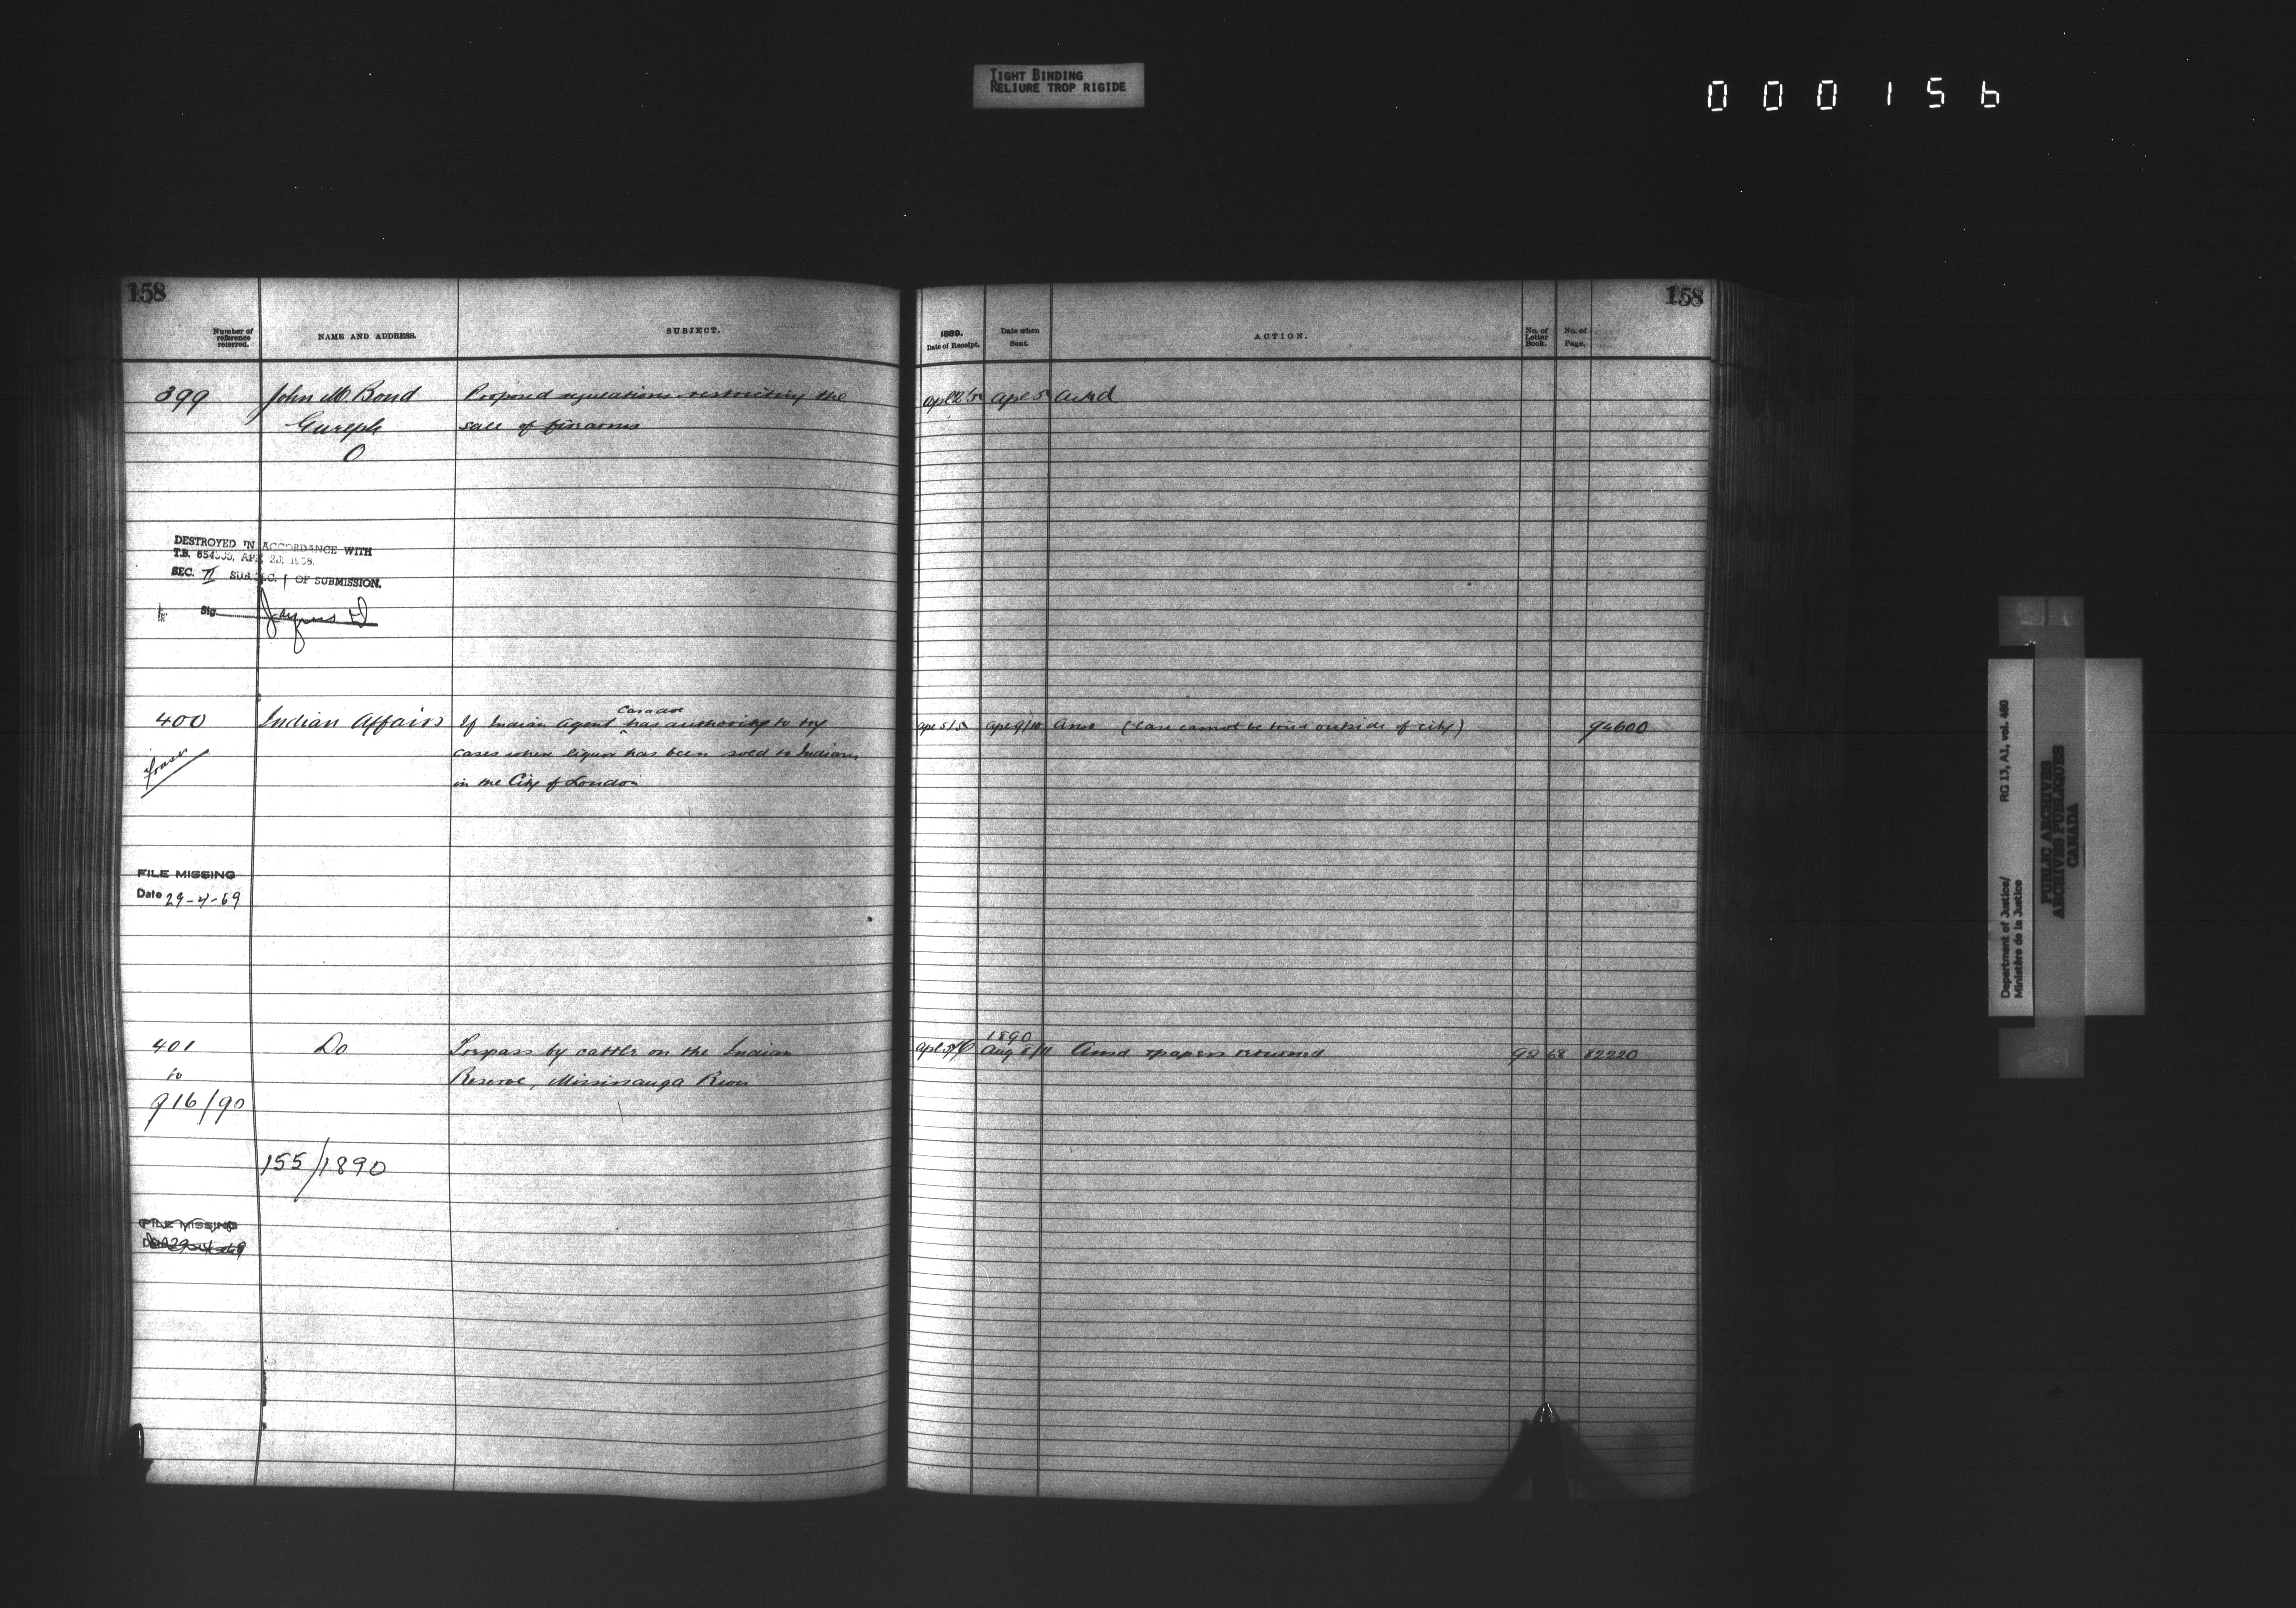 TIGHT BINDING
RELIURE TROP RIGIDE
000156
158
Number of reference referred.
NAME AND ADDRESS.
SUBJECT.
399
John M. Bond
Proposed regulations restricting the
Guelph
sale of firearms
O
DESTROYED IN ACCORDANCE WITH
T.B. APR.
SEC. II SUB SEC. 1 OF SUBMISSION.
Sig.
400
Indian Affairs
If Indian Agent has authority to try
cases where liquor has been sold to Indians
in the City of London
FILE MISSING
Date 29-4-69
401
Do
Trespass by cattle on the Indian
to
Reserve, Mississauga River
916/90
155/1890
FILE MISSING
158
1889.
Date of Receipt.
Date when Sent.
ACTION.
No. of Letter Book.
No. of Page.
Apl 2/5
Apl 5
Ackd
Apl 5/5
Apl 9/10
(Case cannot be tried outside of city)
94600
1890
Aug 8/11
Ansd papers returned
92
68
82220
Department of Justice/
Ministère de la Justice
RG 13, A2, vol. 480
PUBLIC ARCHIVES
ARCHIVES PUBLIQUES
CANADA